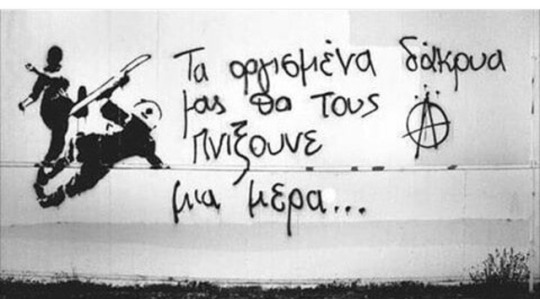 Τα οργισμένα δάκρυα
μας θα τους
πνιξουνε
μια μερα...